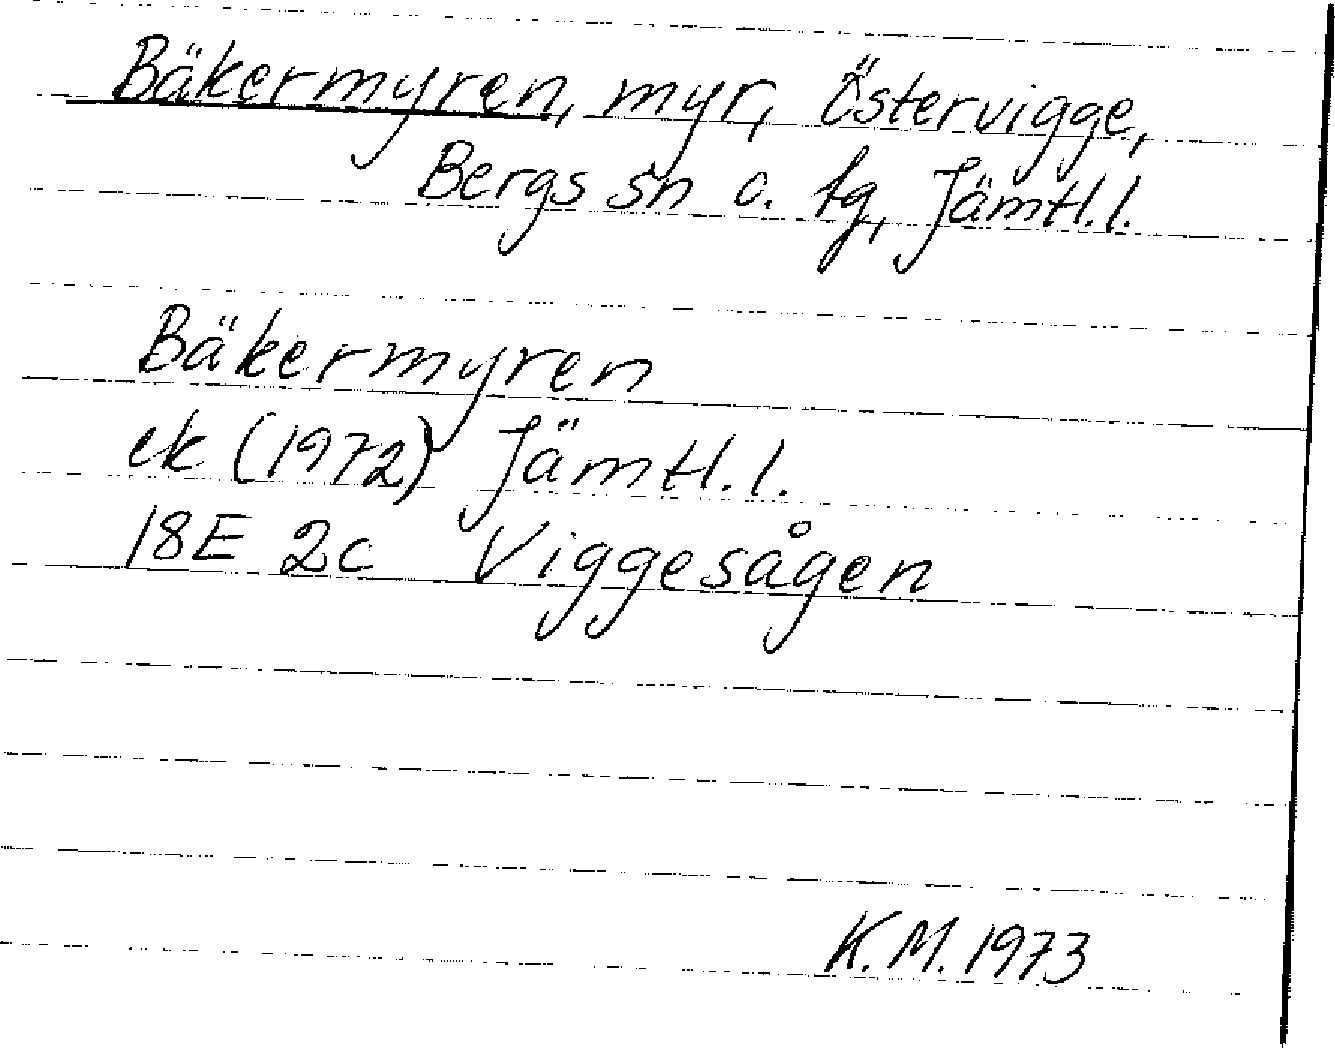 Bäkermyren, myr, Östervigge,
Bergs sn o. tg, Jämtl.l.
Bäkermyren
ek (1972) Jämtl.l.
18E 2c Viggesågen
K.M. 1973